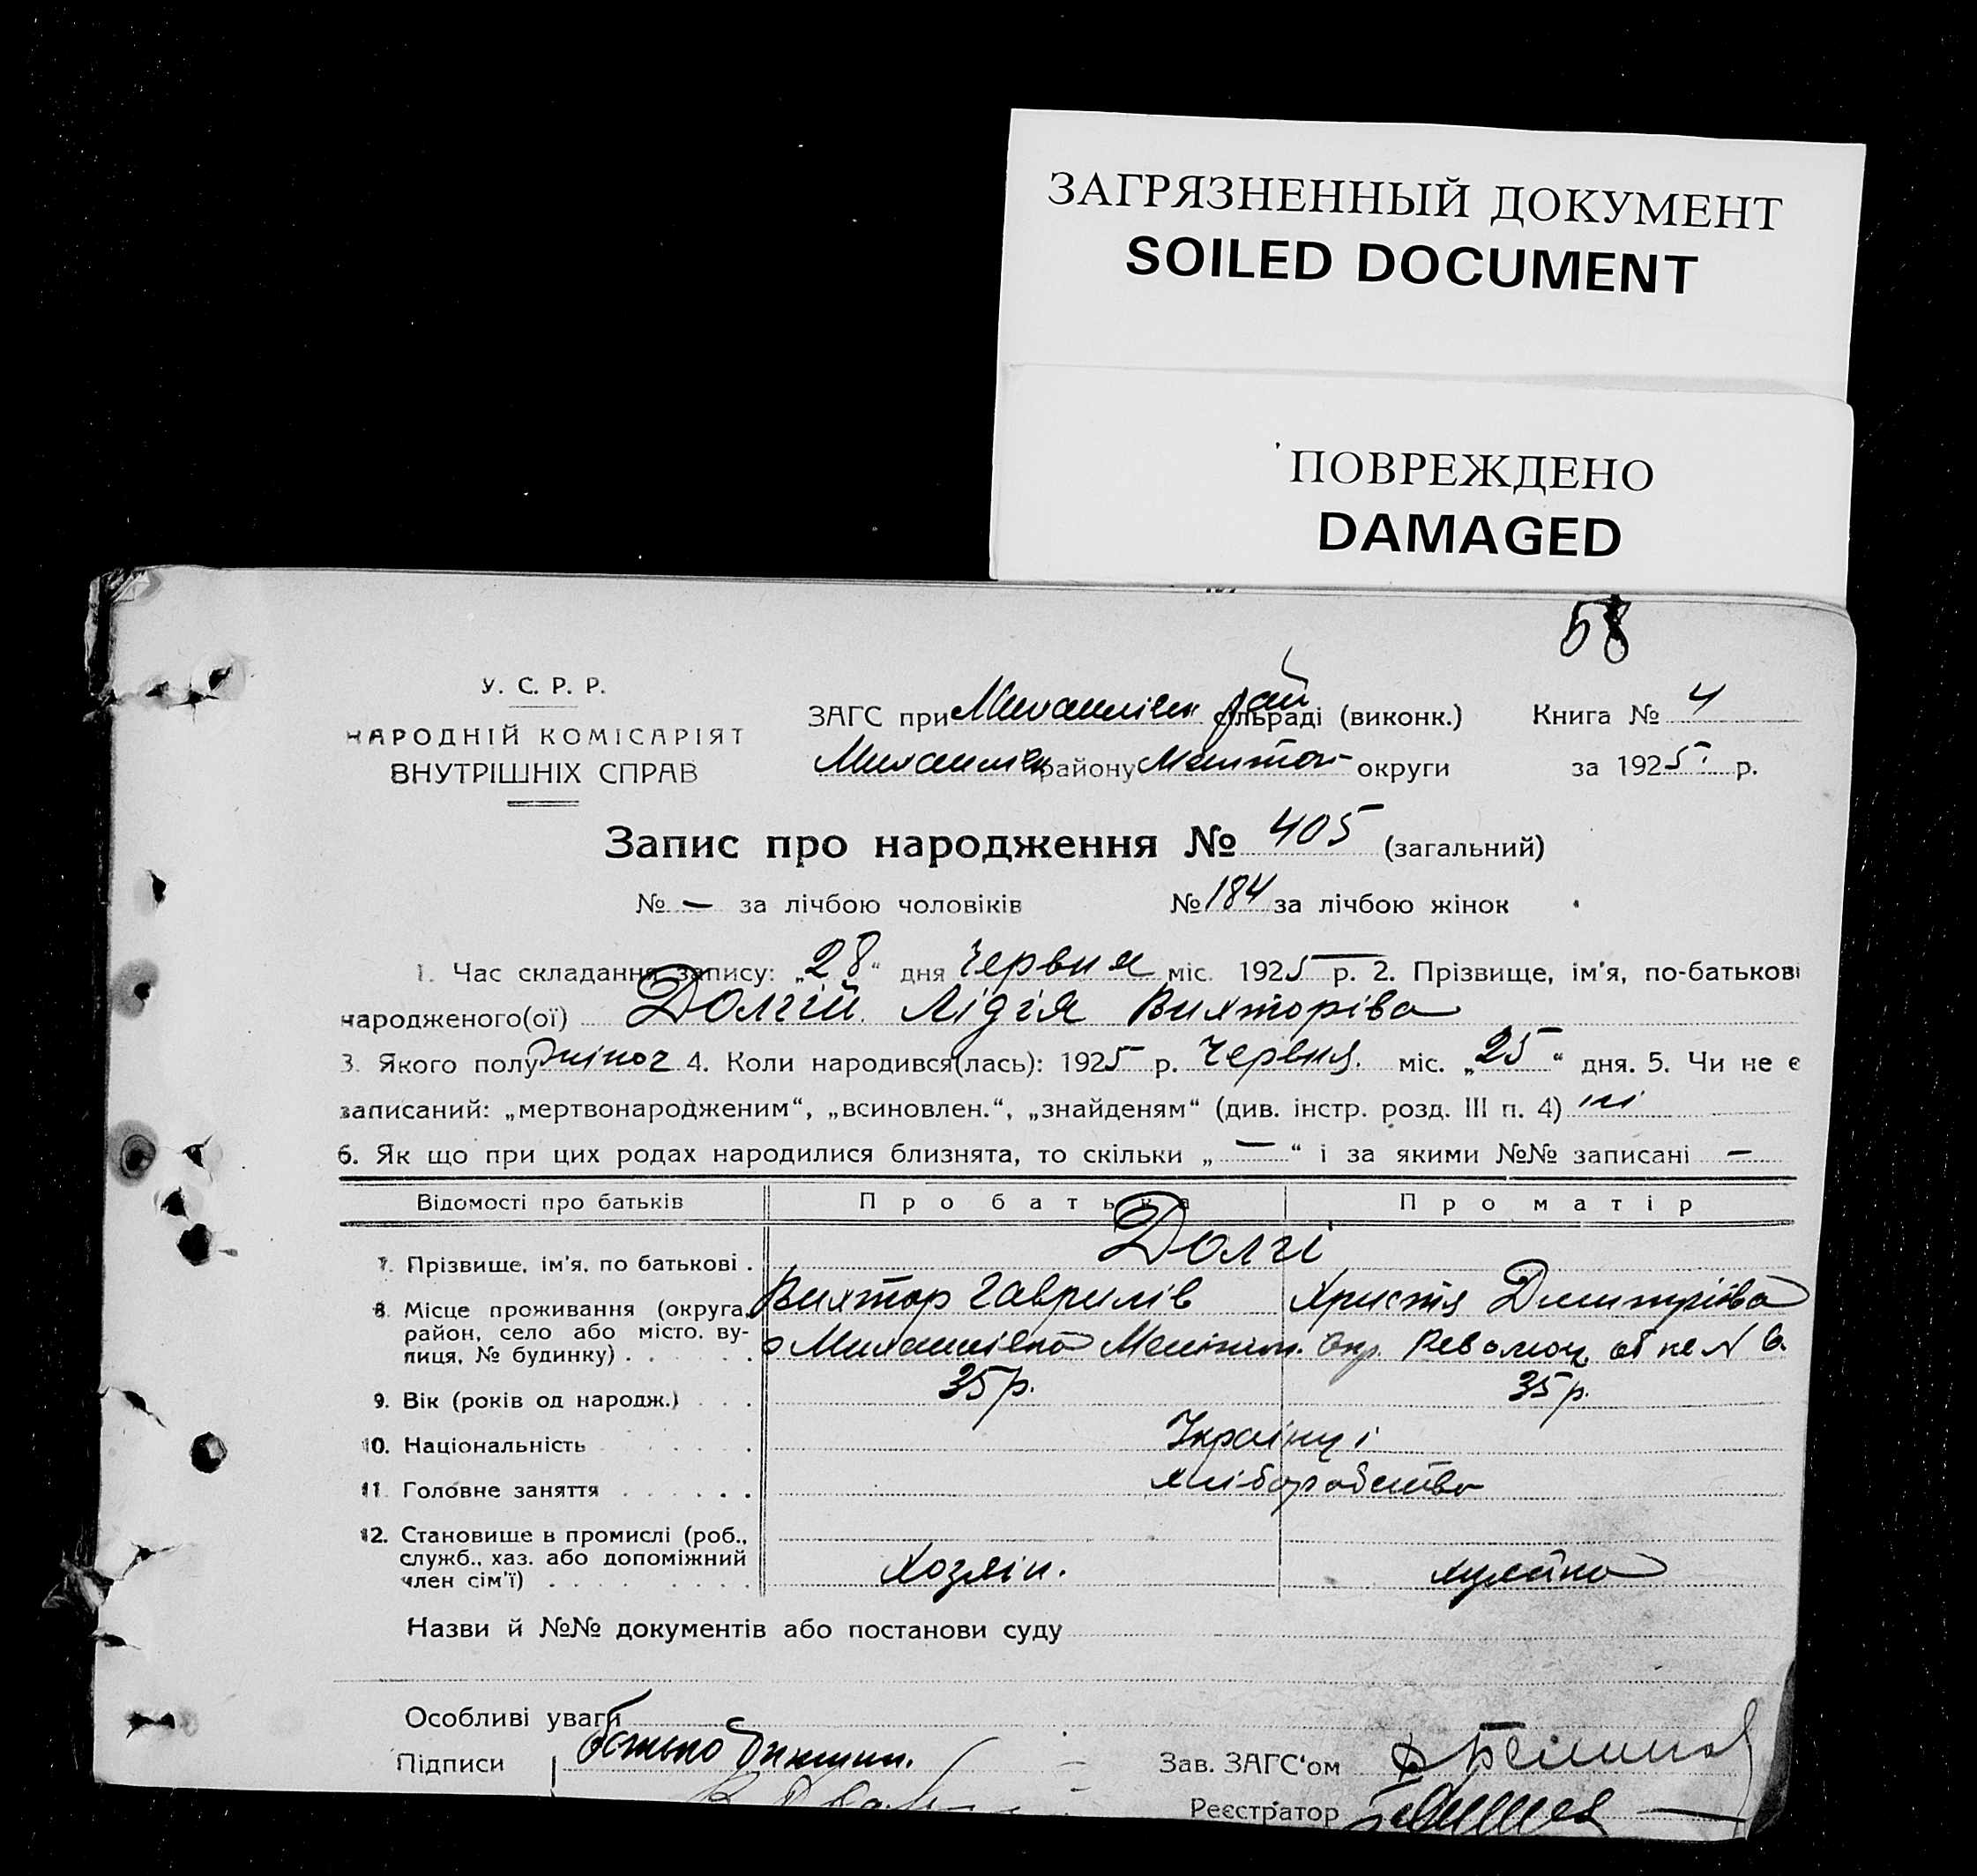 ЗАГРЯЗНЕННЫЙ ДОКУМЕНТ
SOILED DOCUMENT
ПОВРЕЖДЕНО
DAMAGED
58
У. С. Р. Р.
НАРОДНІЙ КОМІСАРІЯТ
ВНУТРІШНІХ СПРАВ
ЗАГС при Михайлівськ рай сільраді (виконк.) Книга № 4
району Меліто округи за 1925 р.
Запис про народження № 405 (загальний)
№ — за лічбою чоловіків № 184 за лічбою жінок
1. Час складання запису: „28“ дня Червня міс. 1925 р. 2. Прізвище, ім'я, по-батькові
народженого(ої) Долгій Лідія Вихторівa
3. Якого полу жіноч 4. Коли народився(лась): 1925 р. Червня. міс. „25“ дня. 5. Чи не є
записаний: „мертвонародженим“, „всиновлен.“, „знайденям“ (див. інстр. розд. III п. 4) ні
6. Як що при цих родах народилися близнята, то скільки „—“ і за якими №№ записані —
Відомості про батьків Про батька Про матір
7. Прізвище, ім'я, по батькові . Долгі
Вихтор Гаврилів Христя Дмитрівa
8. Місце проживання (округа,
район, село або місто, ву-
лиця, № будинку) . . . . . Михайлівка Меліт. Окр. Революц
9. Вік (років од народж.) . . . 35 р. 35 р.
10. Національність . . . . . Українці
11. Головне заняття . . . . . . хліборобство
12. Становище в промислі (роб.,
служб., хаз. або допоміжний
член сім'ї) . . . . . . . . . Хозяін. хазяйка
Назви й №№ документів або постанови суду
Особливі уваги
Підписи батько
Зав. ЗАГС'ом
Реєстратор